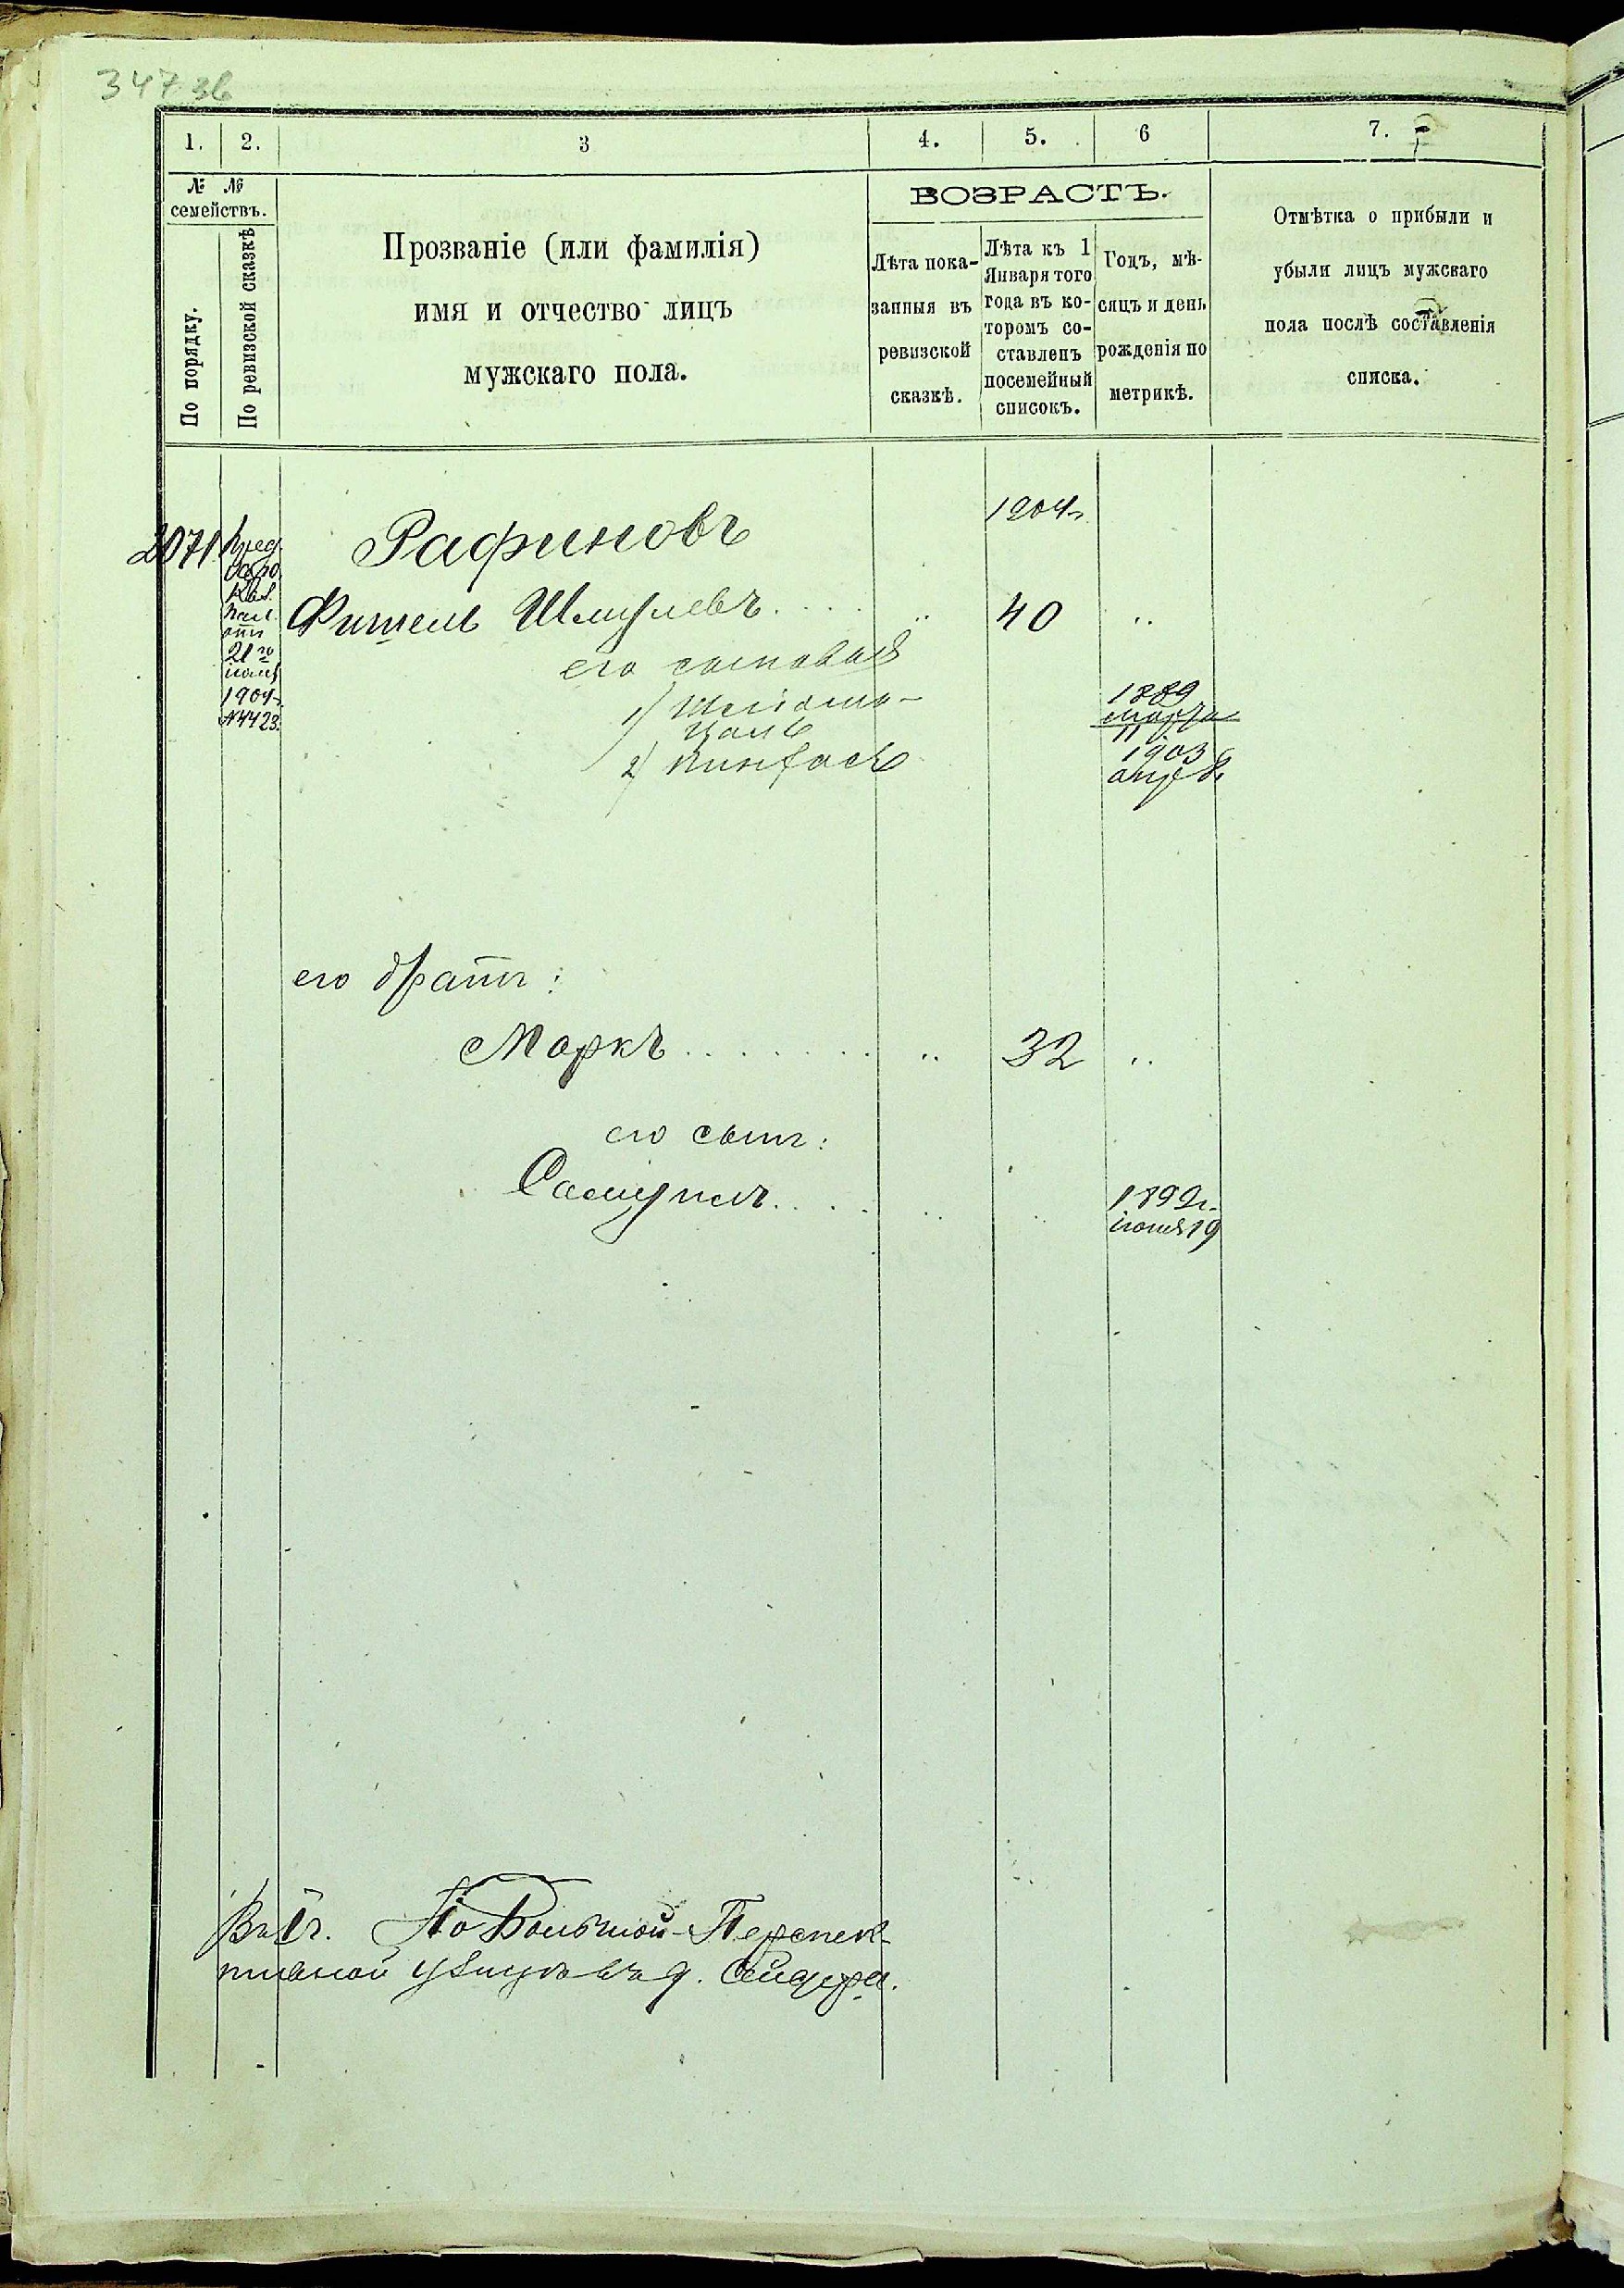 347 зв
1. 2. 3 4. 5. 6 7.
№ №
семействъ.
По порядку.
По ревизской сказкѣ
Прозваніе (или фамилія)
имя и отчество лицъ
мужскаго пола.
ВОЗРАСТЪ.
Лѣта пока-
занныя въ
ревизской
сказкѣ.
Лѣта къ 1
Января того
года въ ко-
торомъ со-
ставленъ
посемейный
списокъ.
Годъ, мѣ-
сяцъ и день
рожденія по
метрикѣ.
Отмѣтка о прибыли и
убыли лицъ мужскаго
пола послѣ составленія
списка.
1904г.
2071
Пред.
Каз.
Пал.
отъ
21го
1904г.
№4423.
Рафиновъ
Фишель Шмулевъ 40
его сыновья
1)
2) Пинхасъ
1889
марта
11
1903
его братъ:
Маркъ 32
его сынъ:
Самуилъ
1892г.
іюня 19
По Большой-Перспек-
тивной улицѣ въ д.